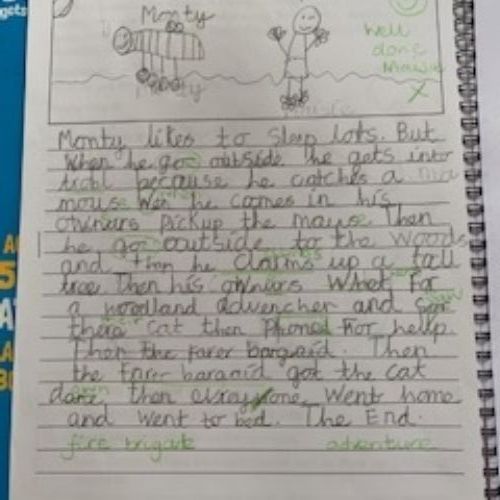 gets
Monty
Well
done
Monty
x
Monty likes to sleep lots. But
when he go outside he gets into
because he catches a
mouse he comes in his
ownars pickup the mouse Then
he go outside to the woods
and then he claims up a tall
tree Then his ownars Whet For
a woodland advencher and
there cat then Phoned For hellp.
Then the farer bargaid. Then
the farer baragid got the cat
then went home
and went to bed. The End.
fire brigade adventure